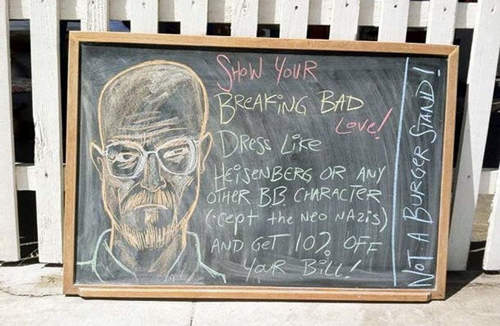 SHOW YOUR
BREAKING BAD
Love!
DRESS LIKE
HEISENBERG OR ANY
OTHER BB CHARACTER
(·cept the NEO NAZIS)
AND GET 10% OFF
YOUR BILL!
NOT A BURGER STAND!